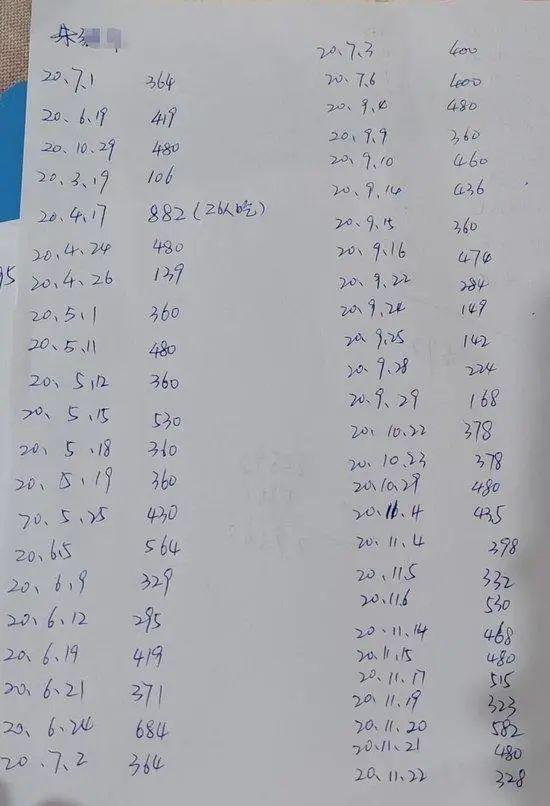 朱
20、7、1 364
20、6、19 419
20、10、29 480
20、3、19 106
20、4、17 882(26人吃)
20、4、24 480
95
20、4、26 139
20、5、1 360
20、5、11 480
20、5、12 360
20、5、15 530
20、5、18 360
20、5、19 360
20、5、25 430
20、6、5 564
20、6、9 329
20、6、12 295
20、6、19 419
20、6、21 371
20、6、24 684
20、7、2 364
20、7、3 400
20、7、6 400
20、9、4 480
20、9、9 360
20、9、10 460
20、9、14 436
20、9、15 360
20、9、16 474
20、9、22 284
20、9、24 149
20、9、25 142
20、9、28 224
20、9、29 168
20、10、22 378
20、10、23 378
20、10、29 480
20、11、4 435
20、11、4 398
20、11、5 332
20、11、6 530
20、11、14 468
20、11、15 480
20、11、17 515
20、11、19 323
20、11、20 582
20、11、21 480
20、11、22 328